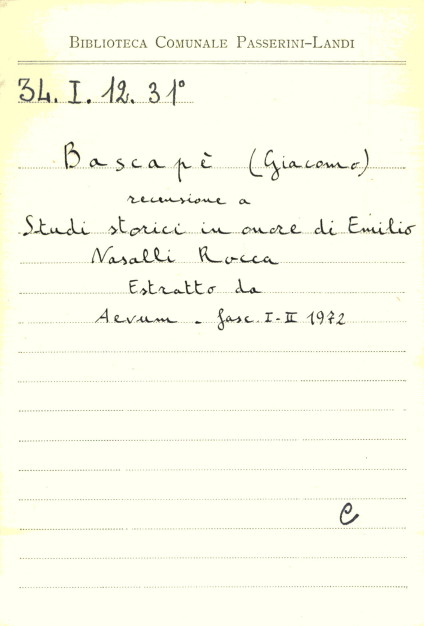 BIBLIOTECA COMUNALE PASSERINI-LANDI
34. I. 12. 31°
Bascapè (Giacomo)
recensione a
Studi storici in onore di Emilio
Nasalli Rocca
Estratto da
Aevum - fasc. I-II 1972
C